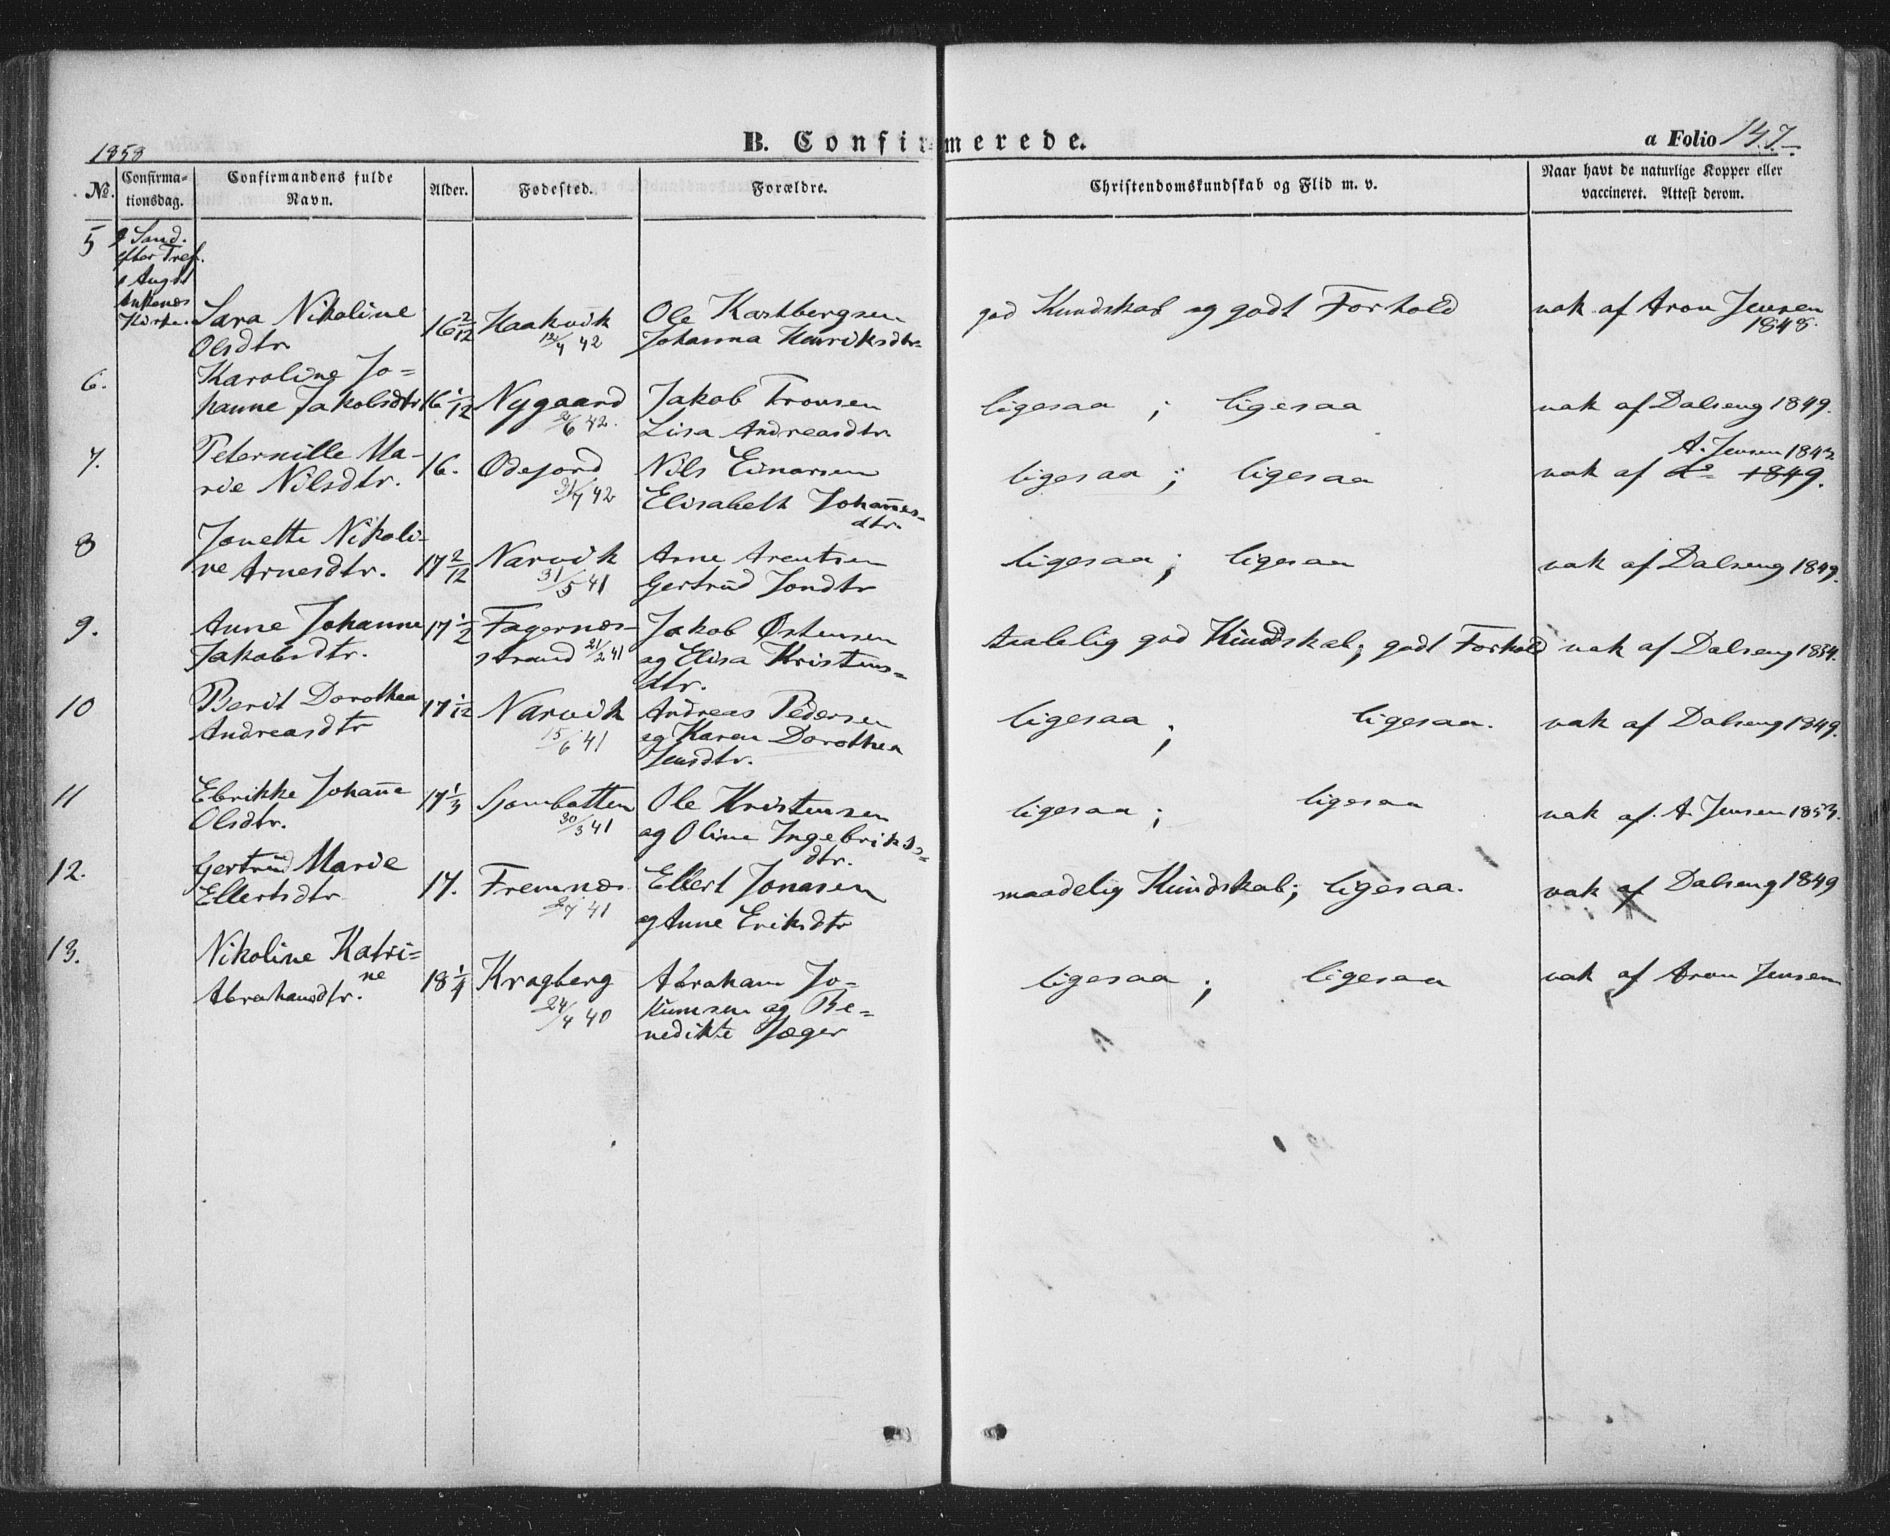 1858
B. Confirmerede.
a Folio 147
No.
Confirma-
tionsdag.
Confirmandens fulde
Navn.
Alder.
Fødested.
Forældre.
Christendomskundskab og Flid m. v.
Naar havt de naturlige Kopper eller
vaccineret. Attest derom.
5
Sønd.
efter Tref.
August
Ankenes
Kirke
Sara Nikoline
Olsdtr
16 2/12
Haakvik
42
Ole Kastbergsen
Johanna Henriksdtr
god Kundskab og godt Forhold
vak af Aron Jensen
1848.
6.
Karoline Jo-
hanne Jakobsdtr
16 1/12
Nygaard
42.
Jakob Tronsen
Lisa Andreasdtr
ligesaa ; ligesaa
vak af Dalseng 1849.
7.
Peternille Ma-
rie Nilsdtr.
16.
Odejord
31/7 42
Nils Einarsen
Elisabeth Johannes-
dtr.
ligesaa ; ligesaa
A. Jensen 1843
vak af do 1849.
8
Jonette Nikoli-
ne Arnesdtr.
17 2/12
Narvik
31/5 41
Arne Arentsen
Gertrud Jondtr
ligesaa ; ligesaa
vak af Dalseng 1849.
9.
Anne Johanne
Jakobsdtr.
17 1/2
Fagernes-
strand 21/2 41
Jakob Østensen
og Elisa Kristens-
dtr.
taalelig god Kundskab; godt Forhold
vak af Dalseng 1854.
10
Berit Dorothea
Andreasdtr
17 1/12
Narvik
15/6 41
Andreas Pedersen
og Karen Dorothea
Jensdtr.
ligesaa ; ligesaa.
vak af Dalseng 1849.
11
Ebrikke Johanne
Olsdtr.
17 1/3
Sjombotten
30/3 41
Ole Kristensen
og Oline Ingebrikts-
dtr.
ligesaa ; ligesaa
vak af A. Jensen 1853.
12.
Gertrud Marie
Ellertsdtr
17.
Fremnes
41
Ellert Jonasen
og Anne Eriksdtr
maadelig Kundskab; ligesaa.
vak af Dalseng 1849
13.
Nikoline Katri-
ne
Abrahamsdtr.
18 1/4
Kragberg
24/4 40
Abraham Jo-
kumsen og Be-
nedikte Jæger
ligesaa ; ligesaa
vak af Aron Jensen